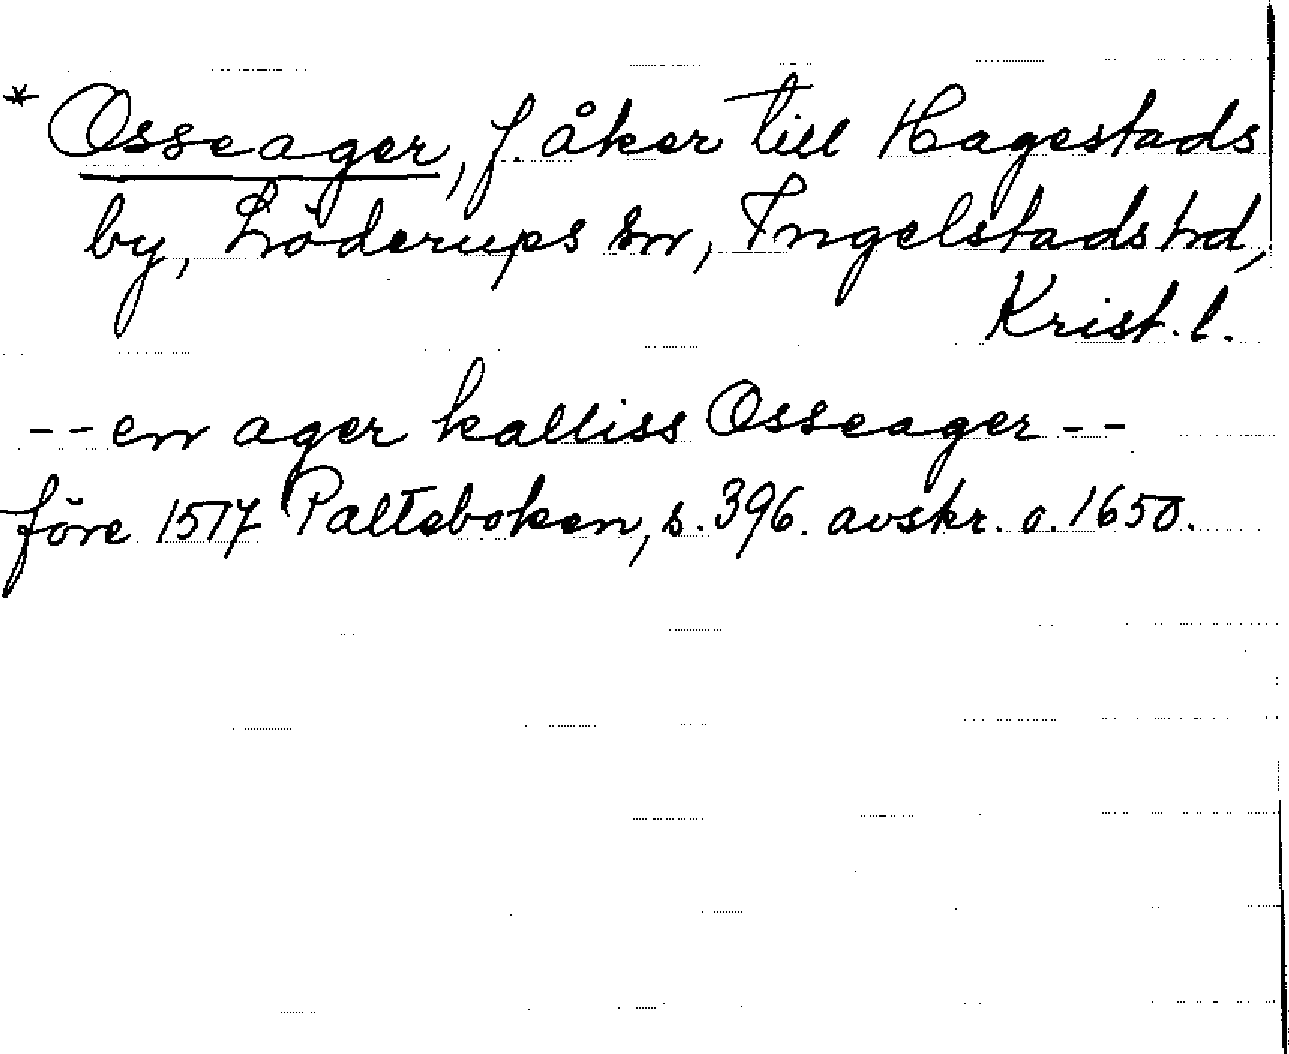 * Osseager, f. åker till Hagestads
by, Löderups sn, Ingelstads hd,
Krist. l.
-- en ager kalliss Osseager --
före 1517 Palteboken, s. 396. avskr. o. 1650.